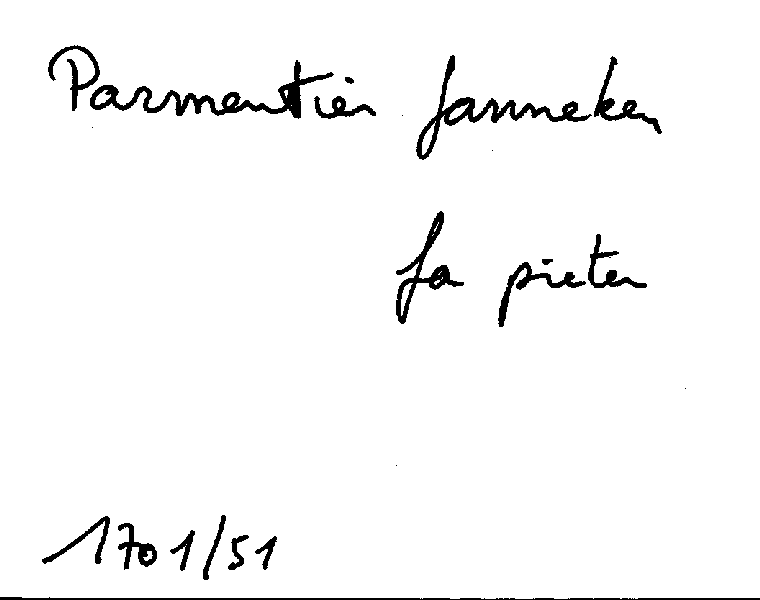 Parmentier Janneken
fa pieter
1701/51